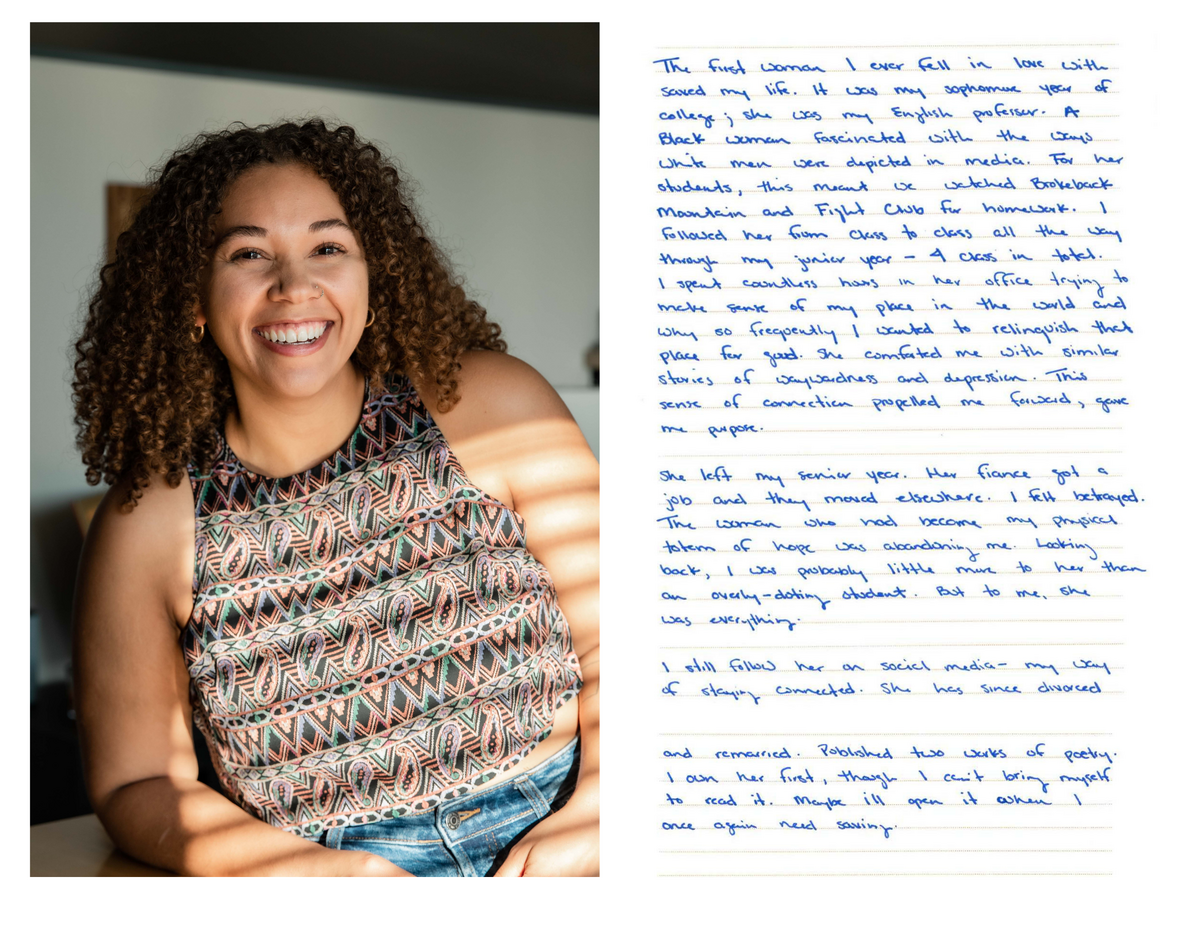 The first woman I ever fell in love with
saved my life. It was my sophomore year of
college; she was my English professor. A
Black woman fascinated with the ways
white men were depicted in media. For her
students, this meant we watched Brokeback
Mountain and Fight Club for homework. I
followed her from class to class all the way
through my junior year – 4 class in total.
I spent countless hours in her office trying to
make sense of my place in the world and
why so frequently I wanted to relinquish that
place for good. She comforted me with similar
stories of waywardness and depression. This
sense of connection propelled me forward, gave
me purpose.
She left my senior year. Her fiance got a
job and they moved elsewhere. I felt betrayed.
The woman who had become my physical
totem of hope was abandoning me. Looking
back, I was probably little more to her than
an overly-doting student. But to me, she
was everything.
I still follow her on social media– my way
of staying connected. She has since divorced
and remarried. Published two works of poetry.
I own her first, though I can't bring myself
to read it. Maybe i'll open it when I
once again need saving.